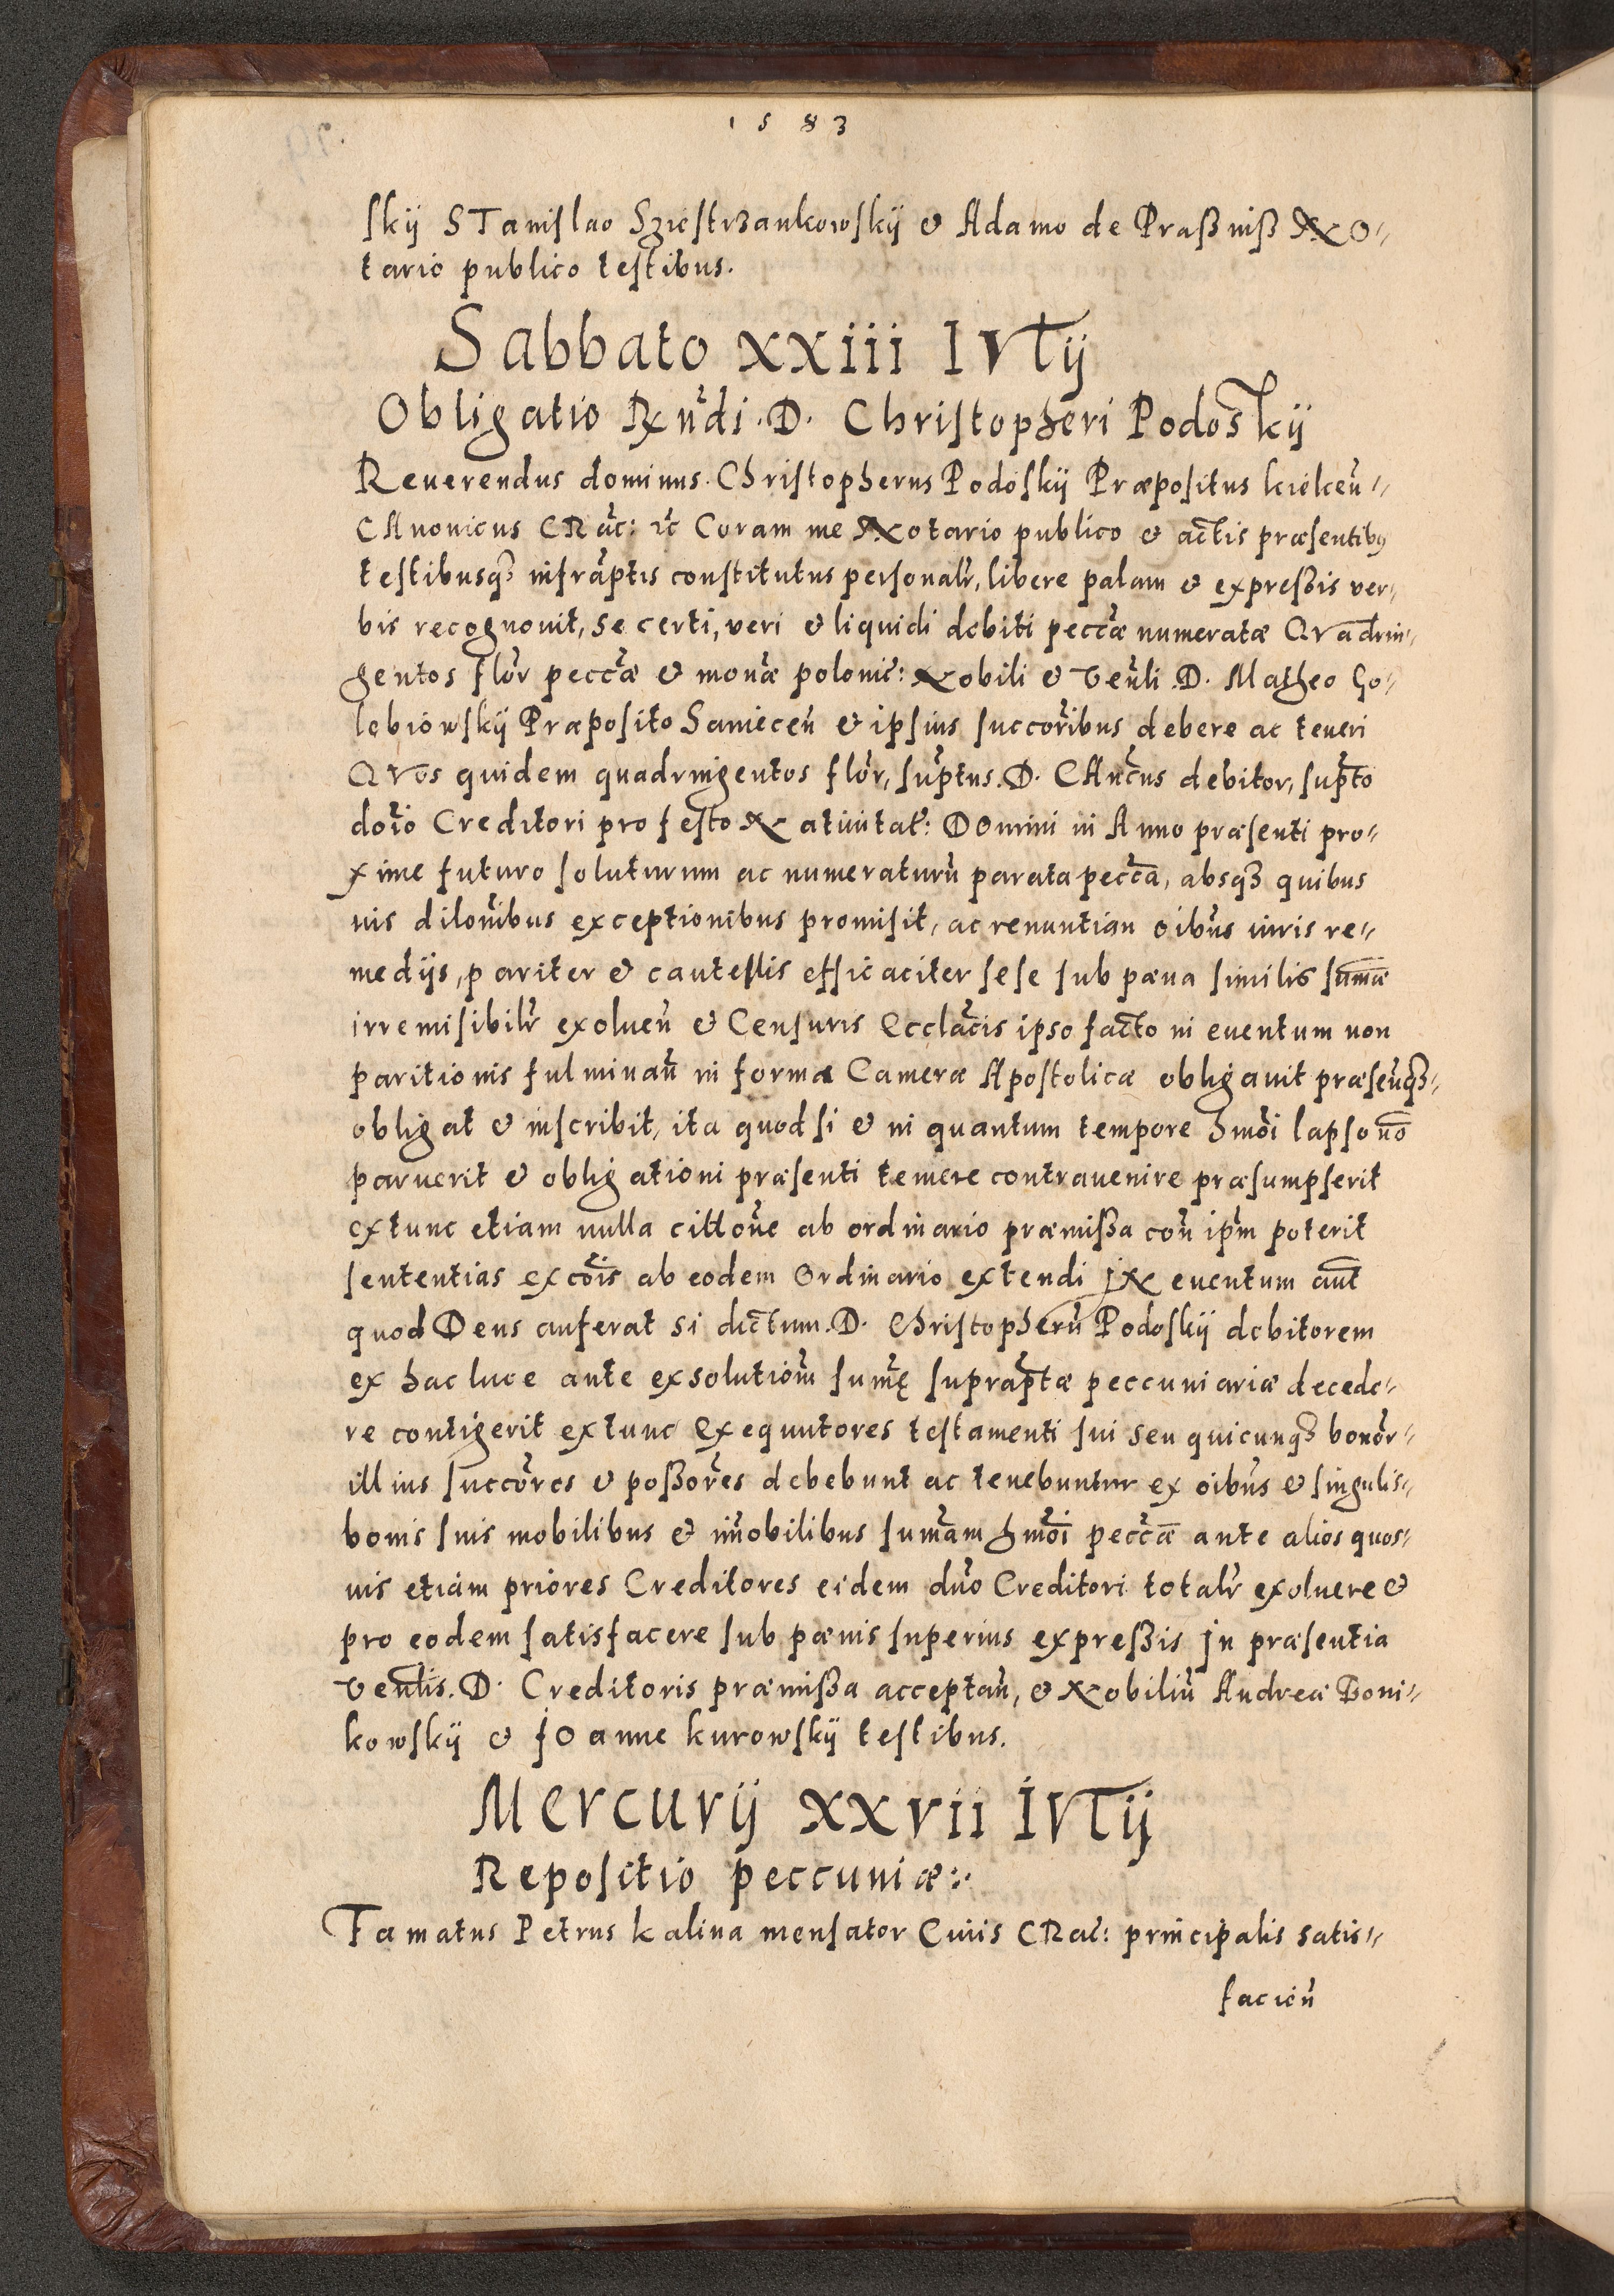 1583
skij STanislao Szrestrzankowskij & Adamo de Praßniß No⸗
tario publico testibus.
Sabbato xxiii IVlij
Obligatio Rndi. D. Christopheri Podoskij
Reuerendus dominus. Christopherus Podoskij Præpositus kielcen̄⸗
CAnonicus CRac̄: ꝛc Coram me Notario publico & actis præsentibus
testibusqꝫ infrāptis constitutus personalr̄, libere palam & expreßis ver⸗
bis recognouit, se certi, veri & liquidi debiti pecc̄æ numeratæ QVadrin⸗
gentos flor̄ pecc̄æ & mon̄æ polonic̄: Nobili & Ven̄li .D. Matheo Go⸗
lebiowskij Præposito Saniecen̄ & ipsius succor̄ibus debere ac teneri
QVos quidem quadringentos flor̄, sup̄tus. D. CAn̄cus debitor, sup̄to
dōio Creditori pro festo Natiuitat̄: DOmini in Anno præsenti pro⸗
xime futuro soluturum ac numeraturū parata pecc̄a, absqꝫ quibus
uis dilōnibus exceptionibus promisit, ac renuntian ōibus iuris re⸗
medijs, pariter & cautellis efficaciter sese sub pæna similis sum̄æ
irremisibilr̄ exoluen̄ & Censuris Ecclācis ipso facto in euentum non
paritionis fulminan̄ in forma Cameræ Apostolicæ obligauit præsen̄qꝫ⸗
obligat & inscribit, ita quod si & in quantum tempore hmōi lapso nō
paruerit & obligationi præsenti temere contrauenire præsumpserit
extunc etiam nulla citt̄one ab ordinario præmißa con̄ ip̄m poterit
sententias excōis ab eodem Ordinario extendi IN euentum aūt
quod Deus auferat si dictum. D. Christopherū Podoskij debitorem
ex hac luce ante exsolutiōn̄ sum̄ę suprap̄tæ peccuniariæ decede⸗
re contigerit extunc Exequutores testamenti sui seu quicunqꝫ bonor̄⸗
illius succor̄es & poßor̄es debebunt ac tenebuntur ex ōibus & singulis⸗
bonis suis mobilibus & im̄obilibus sum̄am hmōi pecc̄æ ante alios quos⸗
uis etiam priores Creditores eidem dn̄o Creditori totalr̄ exoluere &
pro eodem satisfacere sub pænis superius expreßis In præsentia
Ven̄lis. D. Creditoris præmißa acceptan̄, & Nobiliū Andrea Boni⸗
kowskij & JOanne kurowskij testibus.
Mercurij xxvii IVlij
Repositio peccuniæ:
Famatus Petrus kalina mensator Ciuis CRac̄: principalis satis⸗
facien̄